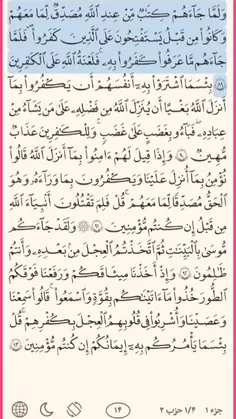 وَلَمَّا جَاءَهُمْ كِتَابٌ مِنْ عِنْدِ اللَّهِ مُصَدِّقٌ لِمَا مَعَهُمْ
وَكَانُوا مِنْ قَبْلُ يَسْتَفْتِحُونَ عَلَى الَّذِينَ كَفَرُوا فَلَمَّا
جَاءَهُمْ مَا عَرَفُوا كَفَرُوا بِهِ فَلَعْنَةُ اللَّهِ عَلَى الْكَافِرِينَ
﴿٨٩﴾ بِئْسَمَا اشْتَرَوْا بِهِ أَنْفُسَهُمْ أَنْ يَكْفُرُوا بِمَا
أَنْزَلَ اللَّهُ بَغْيًا أَنْ يُنَزِّلَ اللَّهُ مِنْ فَضْلِهِ عَلَى مَنْ يَشَاءُ مِنْ
عِبَادِهِ فَبَاءُوا بِغَضَبٍ عَلَى غَضَبٍ وَلِلْكَافِرِينَ عَذَابٌ
مُهِينٌ ﴿٩٠﴾ وَإِذَا قِيلَ لَهُمْ آمِنُوا بِمَا أَنْزَلَ اللَّهُ قَالُوا
نُؤْمِنُ بِمَا أُنْزِلَ عَلَيْنَا وَيَكْفُرُونَ بِمَا وَرَاءَهُ وَهُوَ
الْحَقُّ مُصَدِّقًا لِمَا مَعَهُمْ قُلْ فَلِمَ تَقْتُلُونَ أَنْبِيَاءَ اللَّهِ
مِنْ قَبْلُ إِنْ كُنْتُمْ مُؤْمِنِينَ ﴿٩١﴾ وَلَقَدْ جَاءَكُمْ
مُوسَى بِالْبَيِّنَاتِ ثُمَّ اتَّخَذْتُمُ الْعِجْلَ مِنْ بَعْدِهِ وَأَنْتُمْ
ظَالِمُونَ ﴿٩٢﴾ وَإِذْ أَخَذْنَا مِيثَاقَكُمْ وَرَفَعْنَا فَوْقَكُمُ
الطُّورَ خُذُوا مَا آتَيْنَاكُمْ بِقُوَّةٍ وَاسْمَعُوا قَالُوا سَمِعْنَا
وَعَصَيْنَا وَأُشْرِبُوا فِي قُلُوبِهِمُ الْعِجْلَ بِكُفْرِهِمْ قُلْ
بِئْسَمَا يَأْمُرُكُمْ بِهِ إِيمَانُكُمْ إِنْ كُنْتُمْ مُؤْمِنِينَ ﴿٩٣﴾
جزء ١ ١/٤ حزب ٢
١٤